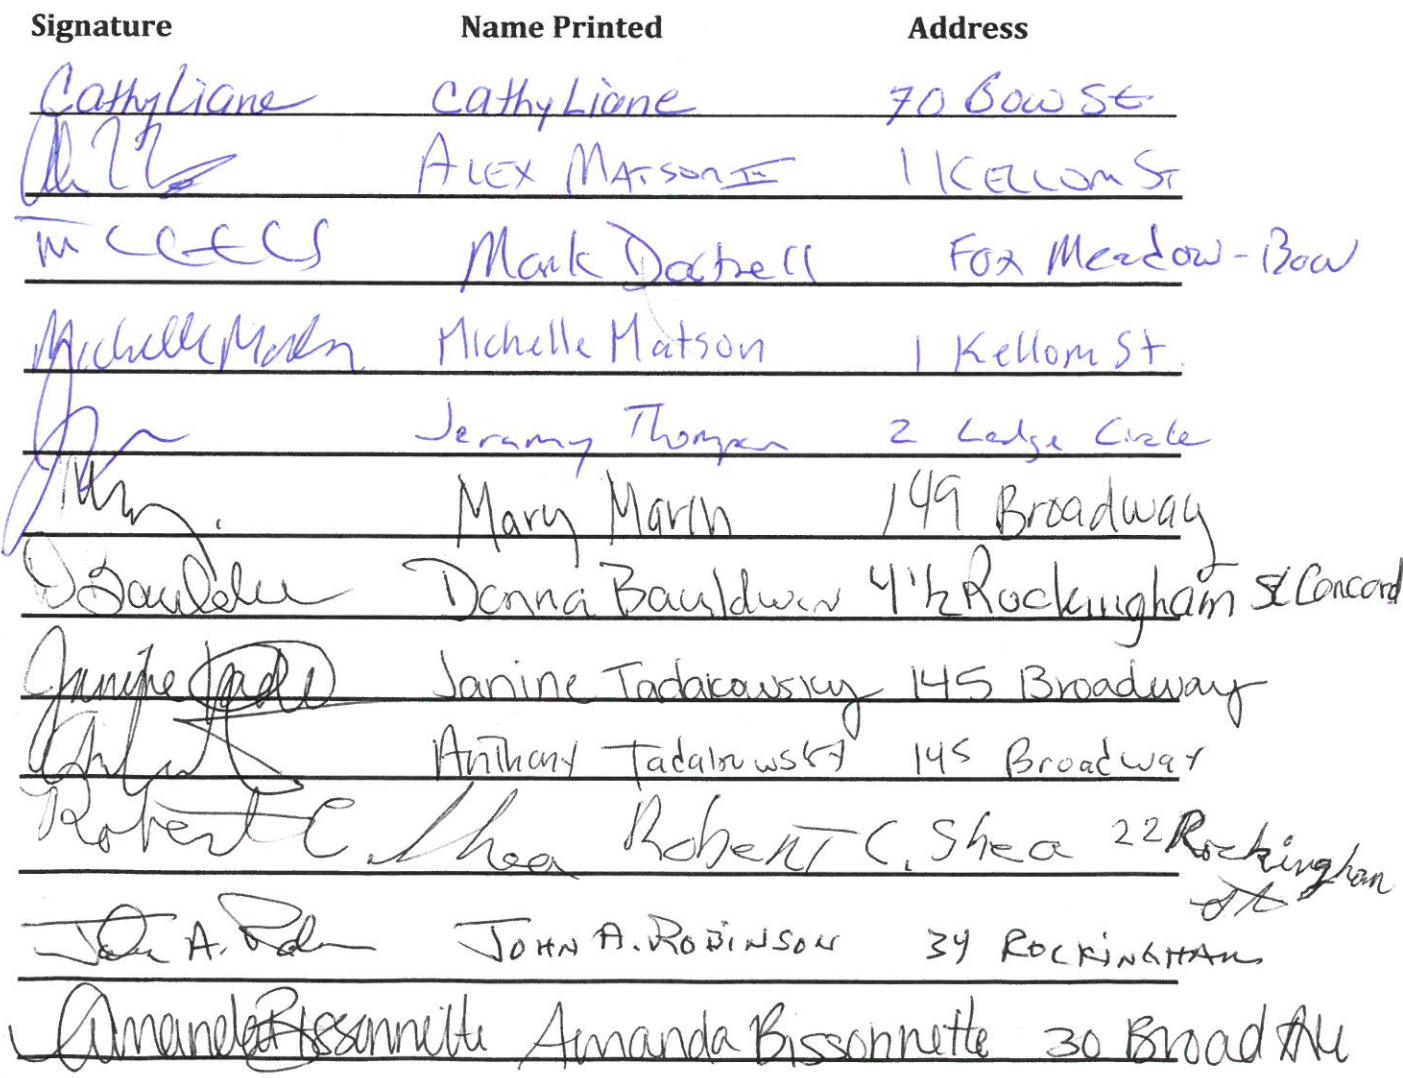 Signature Name Printed Address
Cathy Liane Cathy Liane 70 Bow St.
ALEX MATSON II 1 KELLOM ST
Mark Fox Meadow - Bow
Michelle Matson Michelle Matson 1 Kellom St.
Jeramy Thompson 2 Ledge Circle
Mary March 149 Broadway
Donna Bauldwin 4 1/2 Rockingham St Concord
Janine Tadakowsky 145 Broadway
Anthony Tadakowsky 145 Broadway
Robert C. Shea Robert C. Shea 22 Rockingham
St
John A. JOHN A. ROBINSON 34 ROCKINGHAM
Amanda Bissonnette Amanda Bissonnette 30 Broad Ave